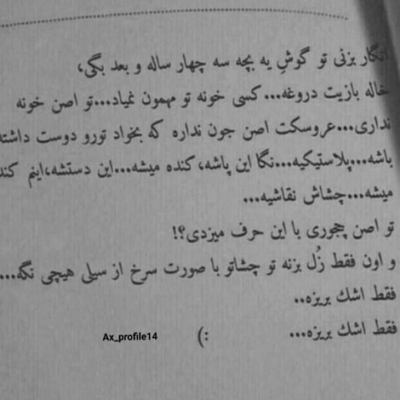 انگار بزنی تو گوشِ یه بچه سه چهار ساله و بعد بگی،
خاله بازیت دروغه...کسی خونه تو مهمون نمیاد...تو اصن خونه
نداری...عروسکت اصن جون نداره که بخواد تورو دوست داشته
باشه...پلاستیکیه...نگا این پاشه،کنده میشه...این دستشه،اینم کنده
میشه...چشاش نقاشیه...
تو اصن چجوری با این حرف میزدی؟!
و اون فقط زُل بزنه تو چشاتو با صورت سرخ از سیلی هیچی نگه...
فقط اشك بریزه..
فقط اشك بریزه... :)
Ax_profile14